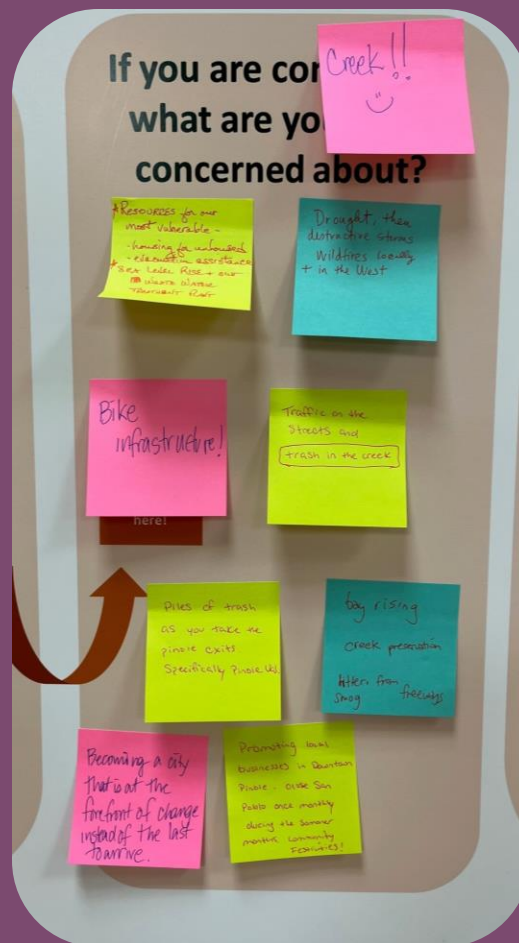 If you are con
what are yo
concerned about?
Creek!!
RESOURCES for our
most vulnerable -
- housing for unhoused
- evacuation assistance
* SEA LEVEL RISE + our
WASTE WATER
TREATMENT PLANT
Drought, then
distructive storms
Wildfires locally
+ in the West
Bike
infrastructure!
here!
Traffic on the
Streets and
trash in the creek
Piles of trash
as you take the
pinole exits
Specifically Pinole
bay rising
creek preservation
litter from freeways
smog
Becoming a city
that is at the
forefront of change
instead of the last
to arrive.
Promoting
businesses in Downtown
Pinole. Close San
Pablo once monthly
during the summer
months, community
FESTIVITIES!